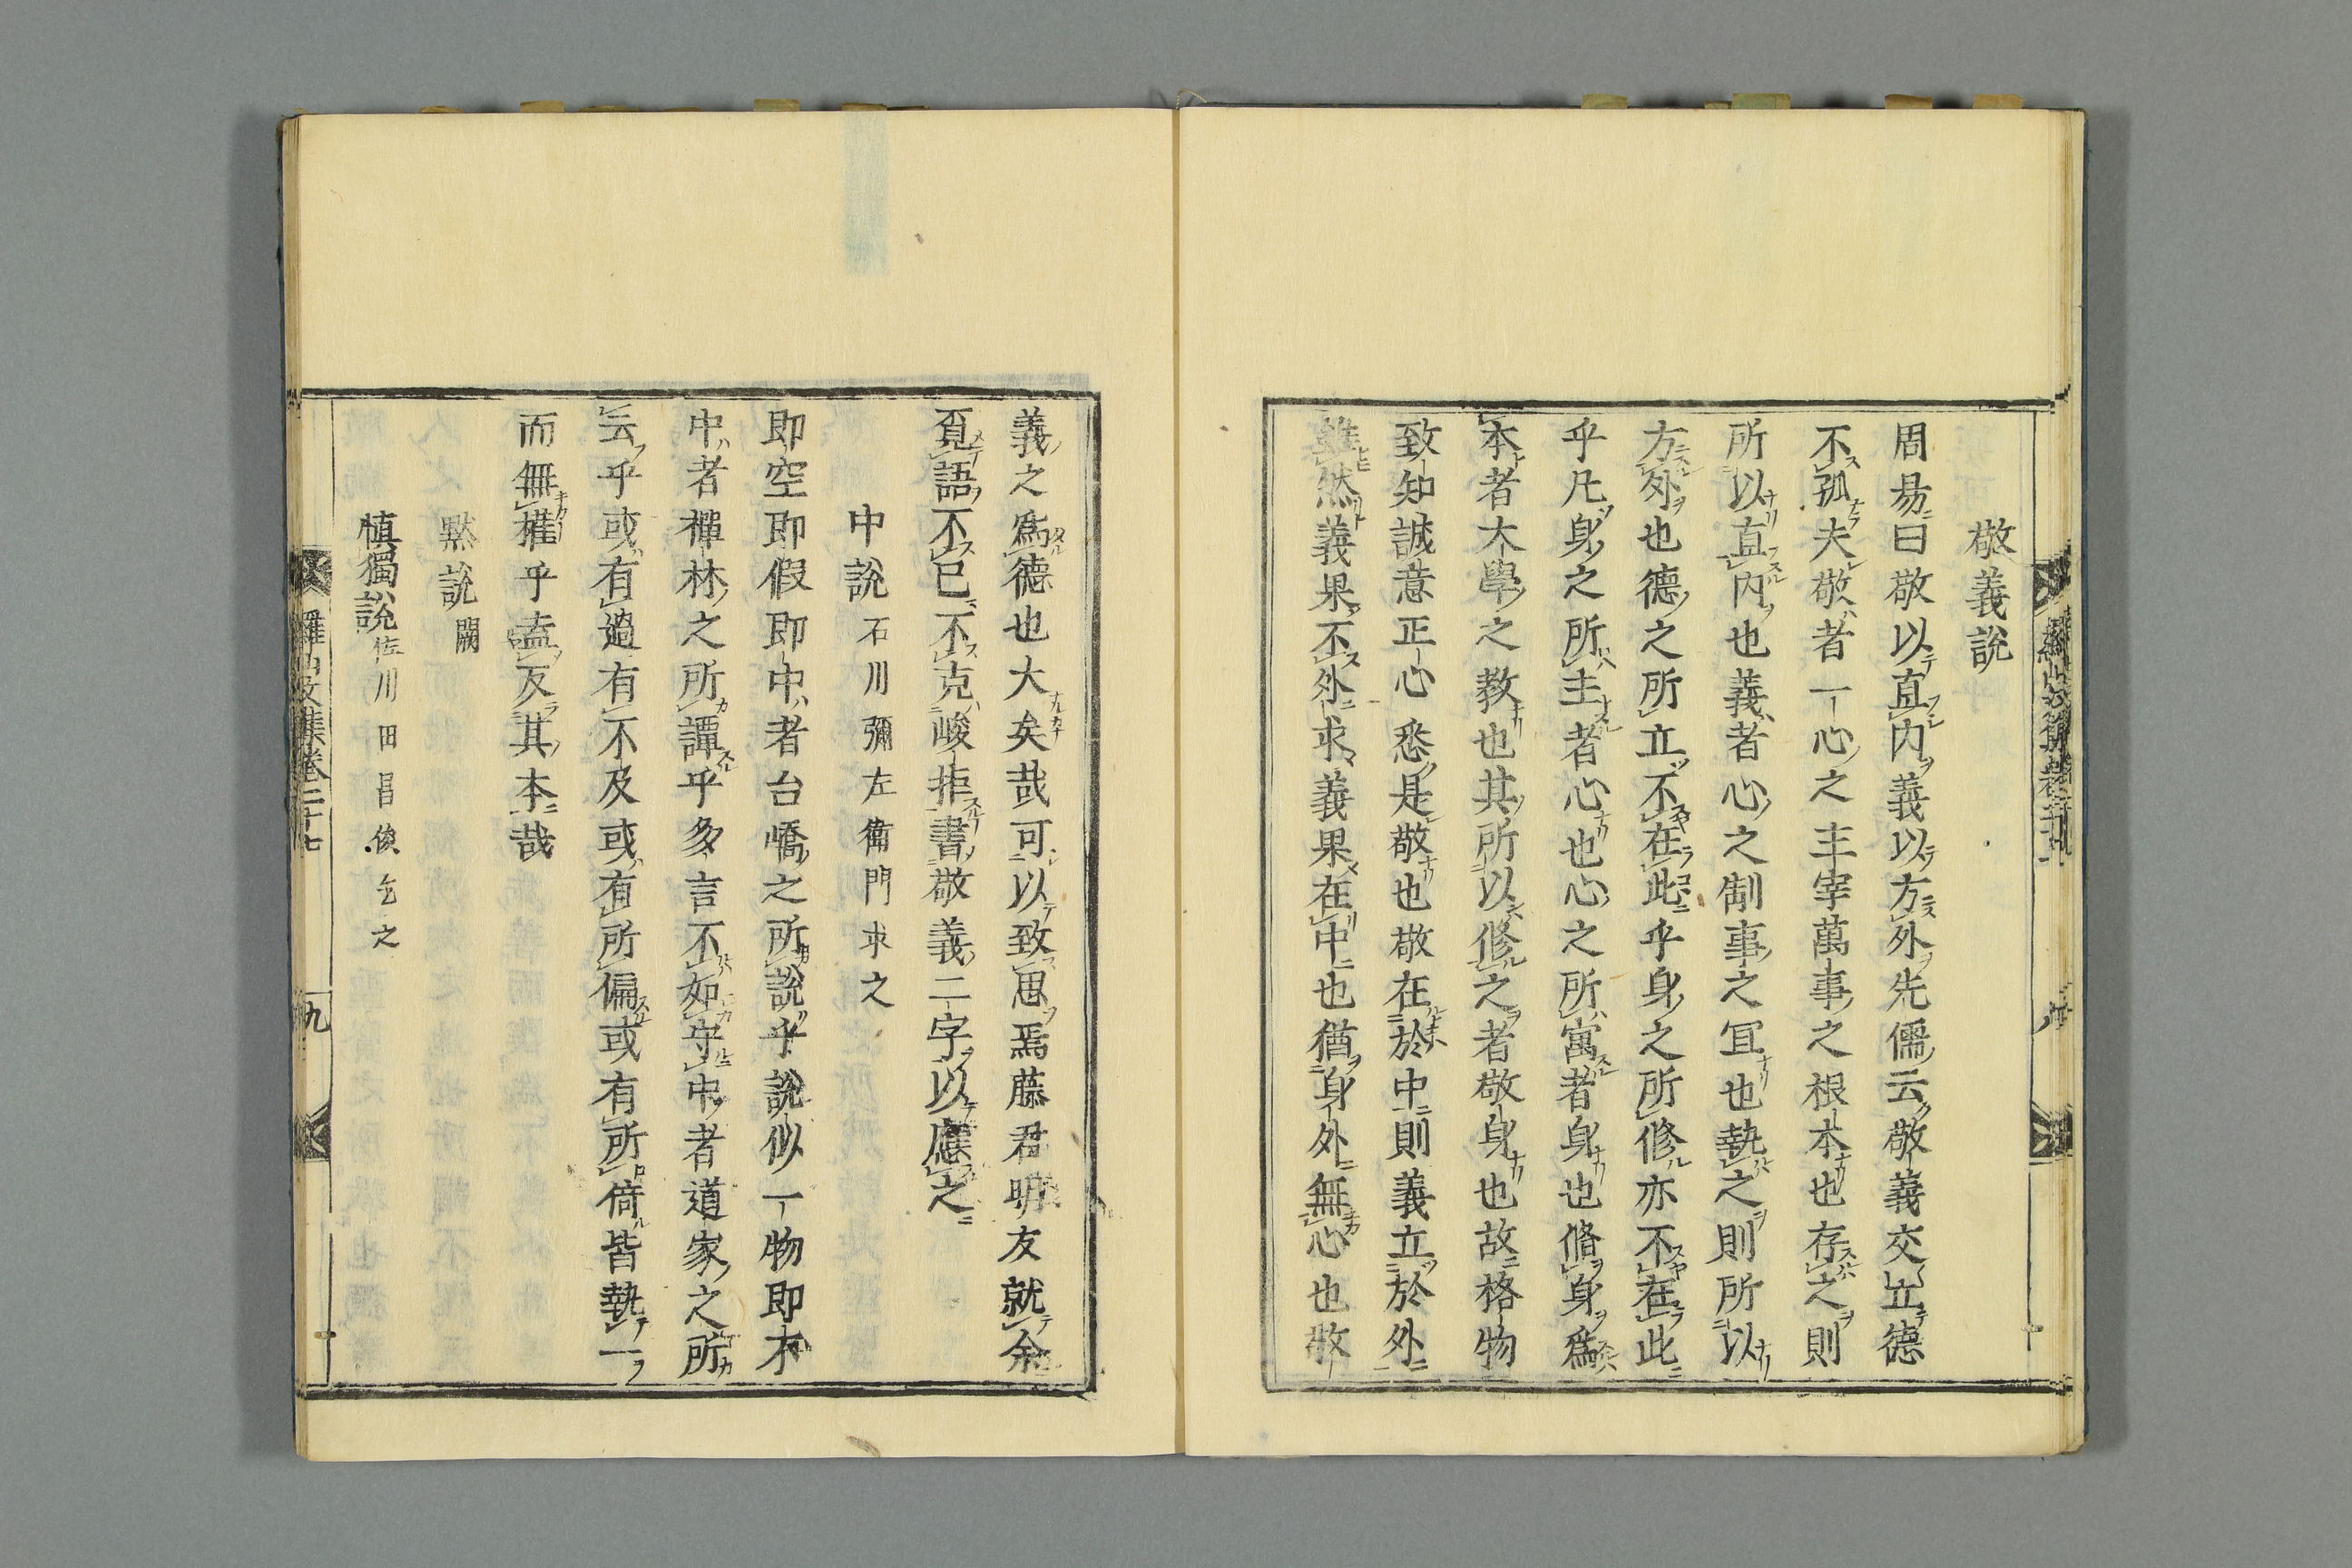 敬義說
周易曰敬以直内義以方外先儒云敬義交立德
不孤夫敬者一心之主宰萬事之根本也存之則
所以直内也義者心之制事之冝也執之則所以
方外也德之所立不在此乎身之所修亦不在此
乎凡身之所主者心也心之所寓者身也脩身爲
本者大學之教也其所以修之者敬身也故格物
致知誠意正心悉是敬也敬在於中則義立於外
雖然義果不外求義果在中也猶身外無心也敬
義之爲德也大矣哉可以致思焉藤君明友就余
覔語不已不克峻拒書敬義二字以應之
中說 石川彌左衞門求之
即空即假即中者台嶠之所說乎說似一物即不
中者禪林之所譚乎多言不如守中者道家之所
云乎或有過有不及或有所偏或有所倚皆執一
而無權乎盍反其本哉
默說 闕
愼獨說 佐川田昌俊乞之
羅山文集卷二十七
九